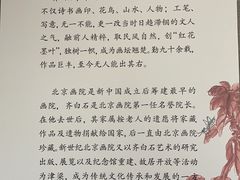 不仅诗书画印、花鸟、山水、人物；工笔、
写意，无一不能，更一改当时日趋滞弱的文人
之气，融前人精粹，取民风自然，创“红花
墨叶”，独树一帜，成为画坛翘楚。勤九十余载，
作品巨丰，至今无人能出其右。
北京画院是新中国成立后筹建最早的
画院，齐白石是北京画院第一任名誉院长。
在他去世后，其家属按老人的遗愿将家藏
作品及遗物捐献给国家，后一直由北京画院
珍藏。新世纪北京画院又以齐白石艺术的研究
出版、展览以及纪念馆重建、故居开放等活动
为津梁，成为传统文化传承和发展的一支